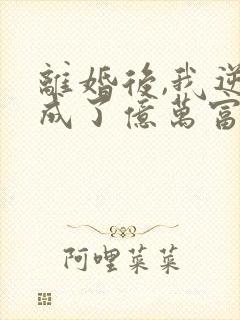 離婚後,我逆
成了億萬富
阿哩菜菜